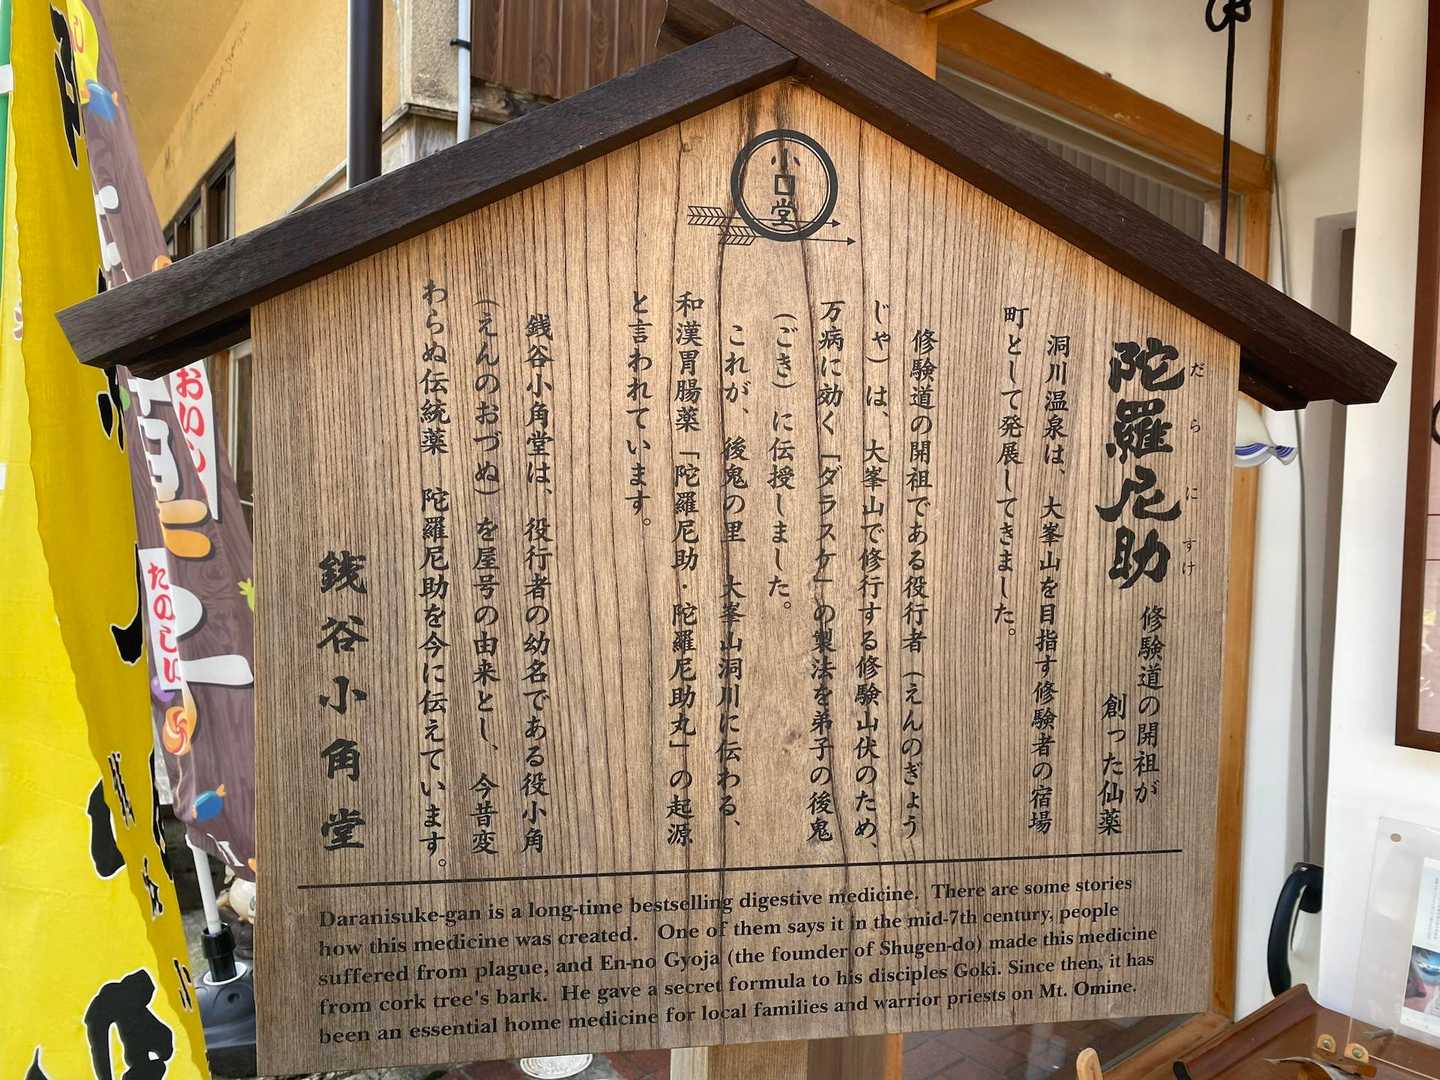 小口堂
陀羅尼助
だらにすけ
修験道の開祖が
創った仙薬
洞川温泉は、大峯山を目指す修験者の宿場
町として発展してきました。
修験道の開祖である役行者（えんのぎょう
じゃ）は、大峯山で修行する修験山伏のため、
万病に効く「ダラスケ」の製法を弟子の後鬼
（ごき）に伝授しました。
これが、後鬼の里　大峯山洞川に伝わる、
和漢胃腸薬「陀羅尼助・陀羅尼助丸」の起源
と言われています。
銭谷小角堂は、役行者の幼名である役小角
（えんのおづぬ）を屋号の由来とし、今昔変
わらぬ伝統薬　陀羅尼助を今に伝えています。
銭谷小角堂
Daranisuke-gan is a long-time bestselling digestive medicine.  There are some stories
how this medicine was created.  One of them says it in the mid-7th century, people
suffered from plague, and En-no Gyoja (the founder of Shugen-do) made this medicine
from cork tree's bark.  He gave a secret formula to his disciples Goki. Since then, it has
been an essential home medicine for local families and warrior priests on Mt. Omine.
おいしい
たのしい